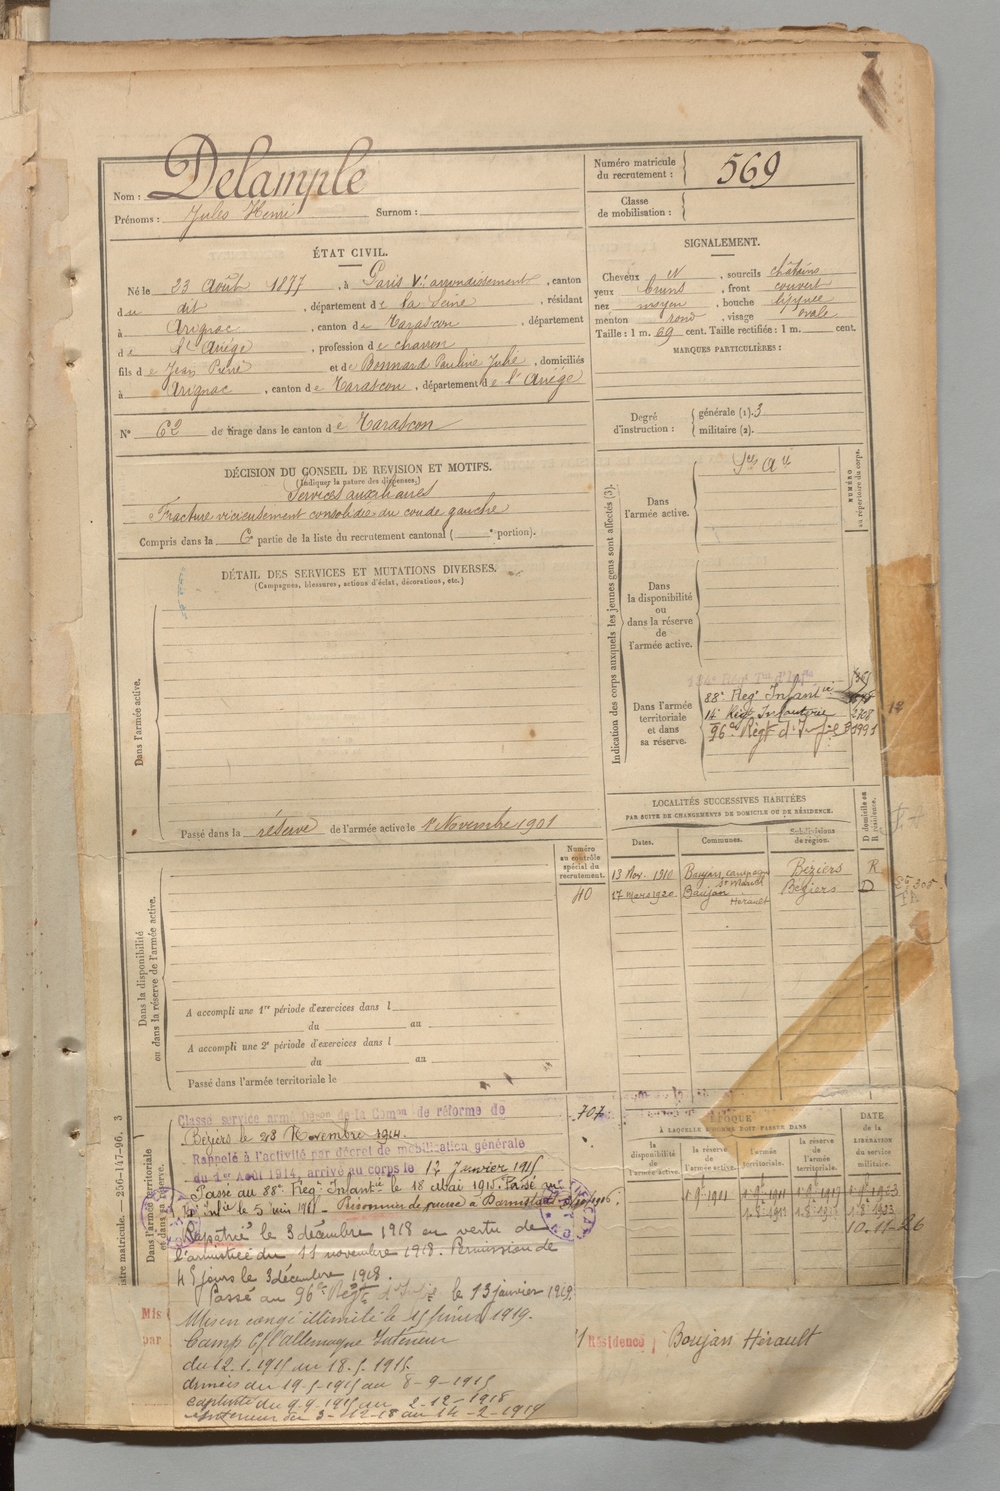 Nom : Delample
Prénoms : Jules Henri Surnom :
Numéro matricule du recrutement : 569
Classe de mobilisation :
ÉTAT CIVIL.
Né le 23 Août 1877, à Paris V.e arrondissement, canton
du dit, département de la Seine, résidant
à Arignac, canton de Tarascon, département
de l'Ariège, profession de charron
fils de Jean Pierre et de Bonnard Pauline Julie, domiciliés
à Arignac, canton de Tarascon, département de l'Ariège
N° 62 de tirage dans le canton de Tarascon
SIGNALEMENT.
Cheveux N, sourcils châtains
yeux bruns, front couvert
nez moyen, bouche
menton rond, visage ovale
Taille : 1 m. 69 cent. Taille rectifiée : 1 m. cent.
MARQUES PARTICULIÈRES :
Degré d'instruction : générale (1). 3
militaire (2).
DÉCISION DU CONSEIL DE REVISION ET MOTIFS.
(Indiquer la nature des dispenses.)
Services auxiliaires
Fracture vicieusement consolidée du coude gauche
Compris dans la 6e partie de la liste du recrutement cantonal ( e portion).
DÉTAIL DES SERVICES ET MUTATIONS DIVERSES.
(Campagnes, blessures, actions d'éclat, décorations, etc.)
Dans l'armée active.
Passé dans la réserve de l'armée active le 1er Novembre 1901
Indication des corps auxquels les jeunes gens sont affectés (3).
NUMÉRO au répertoire du corps.
Dans l'armée active.
Dans la disponibilité ou dans la réserve de l'armée active.
Dans l'armée territoriale et dans sa réserve.
88e Régt Infantie
14e Régt Infanterie 2708
96e Régt d'Infie
LOCALITÉS SUCCESSIVES HABITÉES
PAR SUITE DE CHANGEMENTS DE DOMICILE OU DE RÉSIDENCE.
Dates. Communes. Subdivisions de région. D domicile ou R résidence.
13 Nov. 1910 Boujan, campagne St Martial Béziers R
17 Mars 1920 Boujan Hérault Béziers D
Dans la disponibilité ou dans la réserve de l'armée active.
Numéro au contrôle spécial du recrutement.
40
A accompli une 1re période d'exercices dans l
du au
A accompli une 2e période d'exercices dans l
du au
Passé dans l'armée territoriale le
Dans l'armée territoriale et dans sa réserve.
Classé service armé Déson de la Comon de réforme de
Béziers le 28 Novembre 1914.
Rappelé à l'activité par décret de mobilisation générale
du 1er Août 1914, arrivé au corps le 12 Janvier 1915
Passé au 88e Régt Infantie le 18 Mai 1915. Passé au
14e Infie le 5 juin 1915 - Prisonnier de guerre à Darmstadt
Rapatrié le 3 décembre 1918 en vertu de
l'armistice du 11 novembre 1918. Permission de
45 jours le 3 décembre 1918.
Passé au 96e Régt d'Infie le 13 janvier 1919.
Mis en congé illimité le 15 février 1919.
Camp C/ l'Allemagne Intérieur
du 12.1.1915 au 18.5.1915.
armées du 19-5-1915 au 8-9-1915
captivité du 9.9.1915 au 2-12-1918
intérieur du 3-12-18 au 14-2-1919
707
ÉPOQUE
À LAQUELLE L'HOMME DOIT PASSER DANS
la disponibilité de l'armée active. la réserve de l'armée active. l'armée territoriale. la réserve de l'armée territoriale.
DATE de la LIBÉRATION du service militaire.
10-11-26
Mis
par
Résidence Boujan Hérault